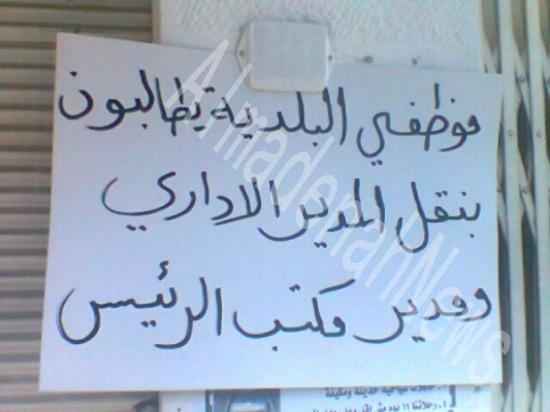 موظفي البلدية يطالبون
بنقل المدير الاداري
ومدير مكتب الرئيس
AlmadenahNews